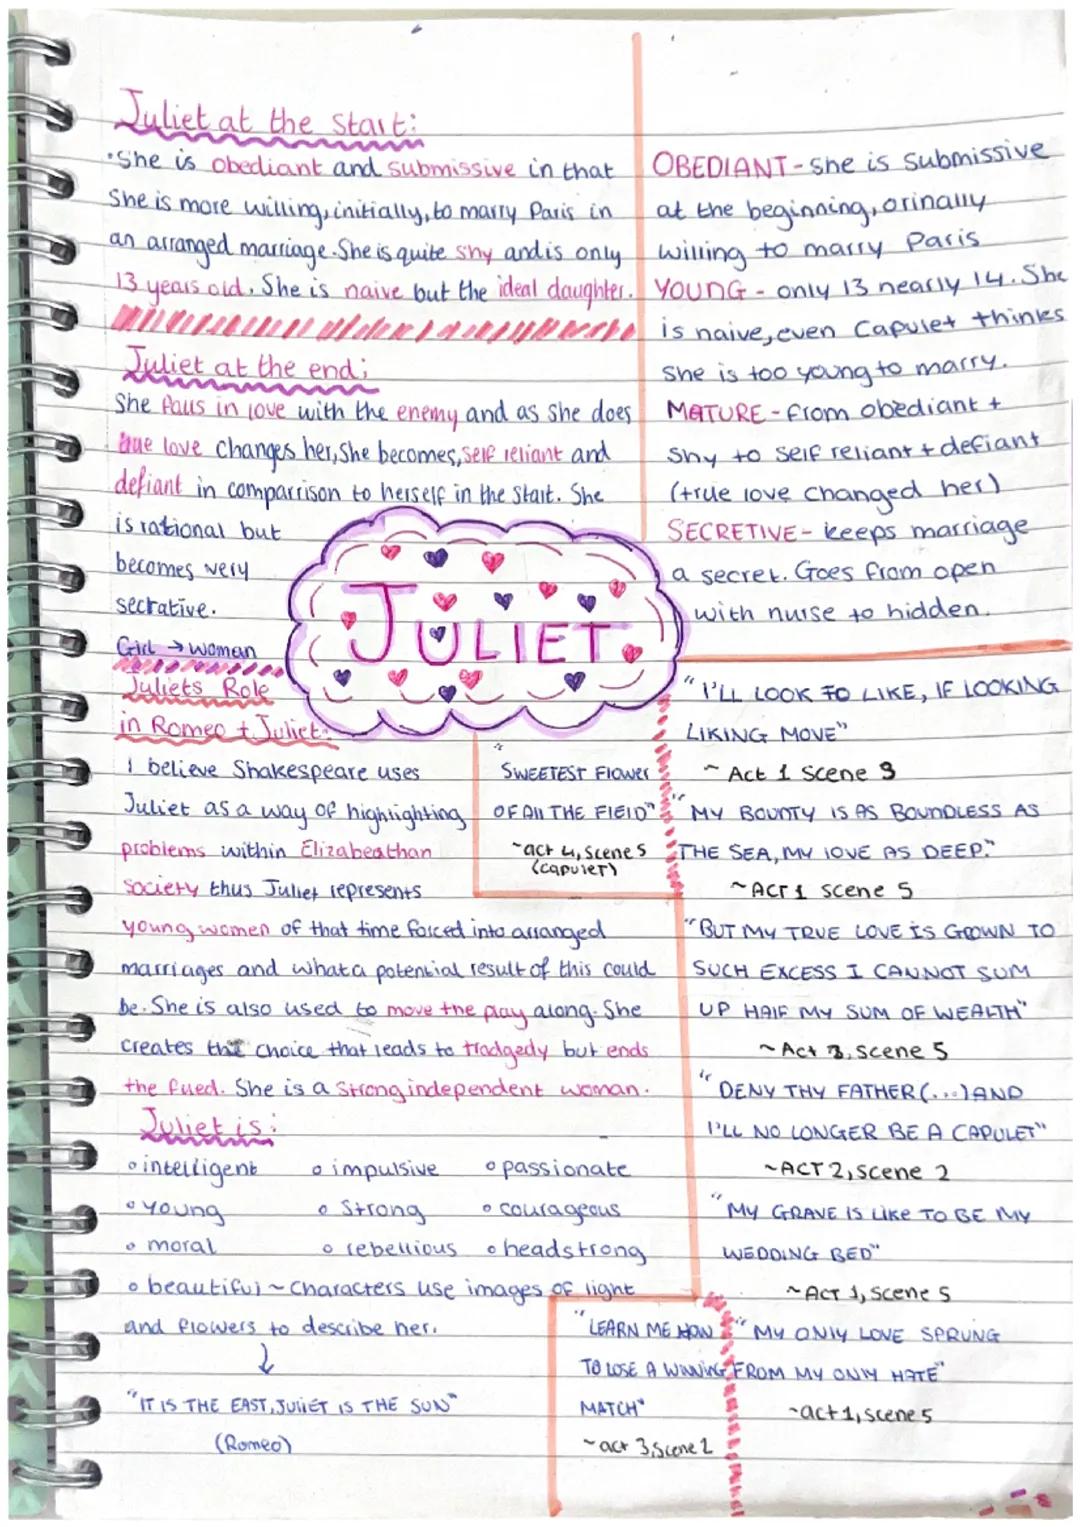 Juliet at the start:
•She is obediant and submissive in that
She is more willing, initially, to marry Paris in
an arranged marriage. She is quite shy and is only
13 years old. She is naive but the ideal daughter.
Juliet at the end;
She falls in love with the enemy and as she does
true love changes her, She becomes, self reliant and
defiant in comparrison to herself in the start. She
is rational but
becomes very
sectative.
Girl → woman
Juliets Role
in Romeo + Juliet:
I believe Shakespeare uses
Juliet as a way of highlighting
problems within Elizabeathan
society thus Juliet represents
young women of that time forced into arranged
marriages and what a potential result of this could
be. She is also used to move the play along. She
creates the choice that leads to tradgedy but ends
the fued. She is a strong independent woman.
Juliet is:
• intelligent • impulsive • passionate
• young • strong • courageous
• moral • rebellious • headstrong
• beautiful ~ Characters use images of light
and flowers to describe her.
↓
"IT IS THE EAST, JULIET IS THE SUN"
(Romeo)
JULIET
OBEDIANT - she is submissive
at the beginning, orinally
willing to marry Paris
YOUNG - only 13 nearly 14. She
is naive, even Capulet thinks
she is too young to marry.
MATURE - from obediant +
shy to self reliant + defiant
(true love changed her)
SECRETIVE - keeps marriage
a secret. Goes from open
with nurse to hidden.
"SWEETEST FLOWER
OF All THE FIElD"
~act 4, scene 5
(capulet)
"I'LL LOOK TO LIKE, IF LOOKING
LIKING MOVE"
~ Act 1 Scene 3
"MY BOUNTY IS AS BOUNDLESS AS
THE SEA, MY lOVE AS DEEP."
~ACT 1 scene 5
"BUT MY TRUE LOVE IS GROWN TO
SUCH EXCESS I CANNOT SUM
UP HAlF MY SUM OF WEALTH"
~Act 3, scene 5
"DENY THY FATHER (...) AND
I'LL NO LONGER BE A CAPULET"
~ACT 2, scene 2
"MY GRAVE IS LIKE TO BE MY
WEDDING BED"
~ACT 1, scene 5
"LEARN ME HOW
TO LOSE A WINNING
MATCH"
~act 3, scene 2
"MY ONlY LOVE SPRUNG
FROM MY ONlY HATE"
~act 1, scene 5